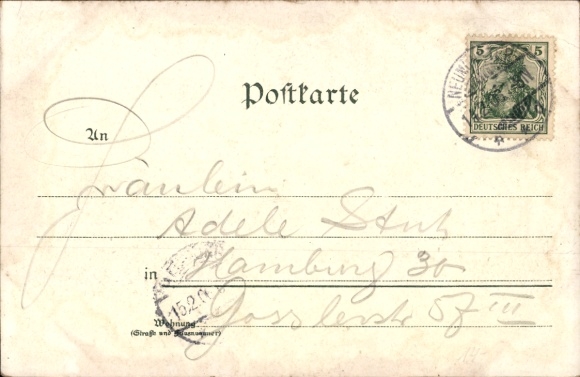 5 5
DEUTSCHES REICH
Postkarte
An
Fräulein
Adele
in Hamburg 30
Gosslerstr 57 III
15.2.0
Wohnung
(Straße und Hausnummer)